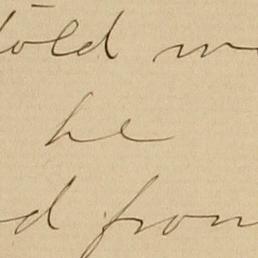 told me
he
d from